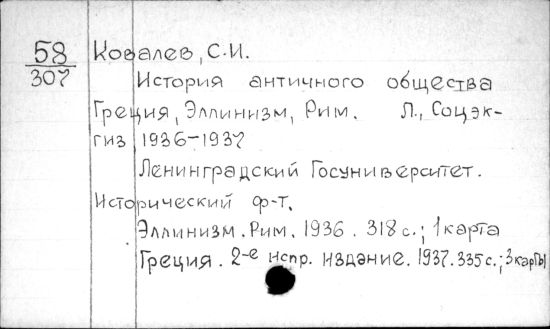 58 Ковалев, С.И.
307 История античного общества
Греция, Эллинизм, Рим. Л., Соцэк-
гиз 1936-1937
Ленинградский Госуниверситет.
Исторический ф-т.
Эллинизм. Рим. 1936. 318 с.; 1 карта
Греция. 2-е испр. издание. 1937. 335 с.; 3 карты